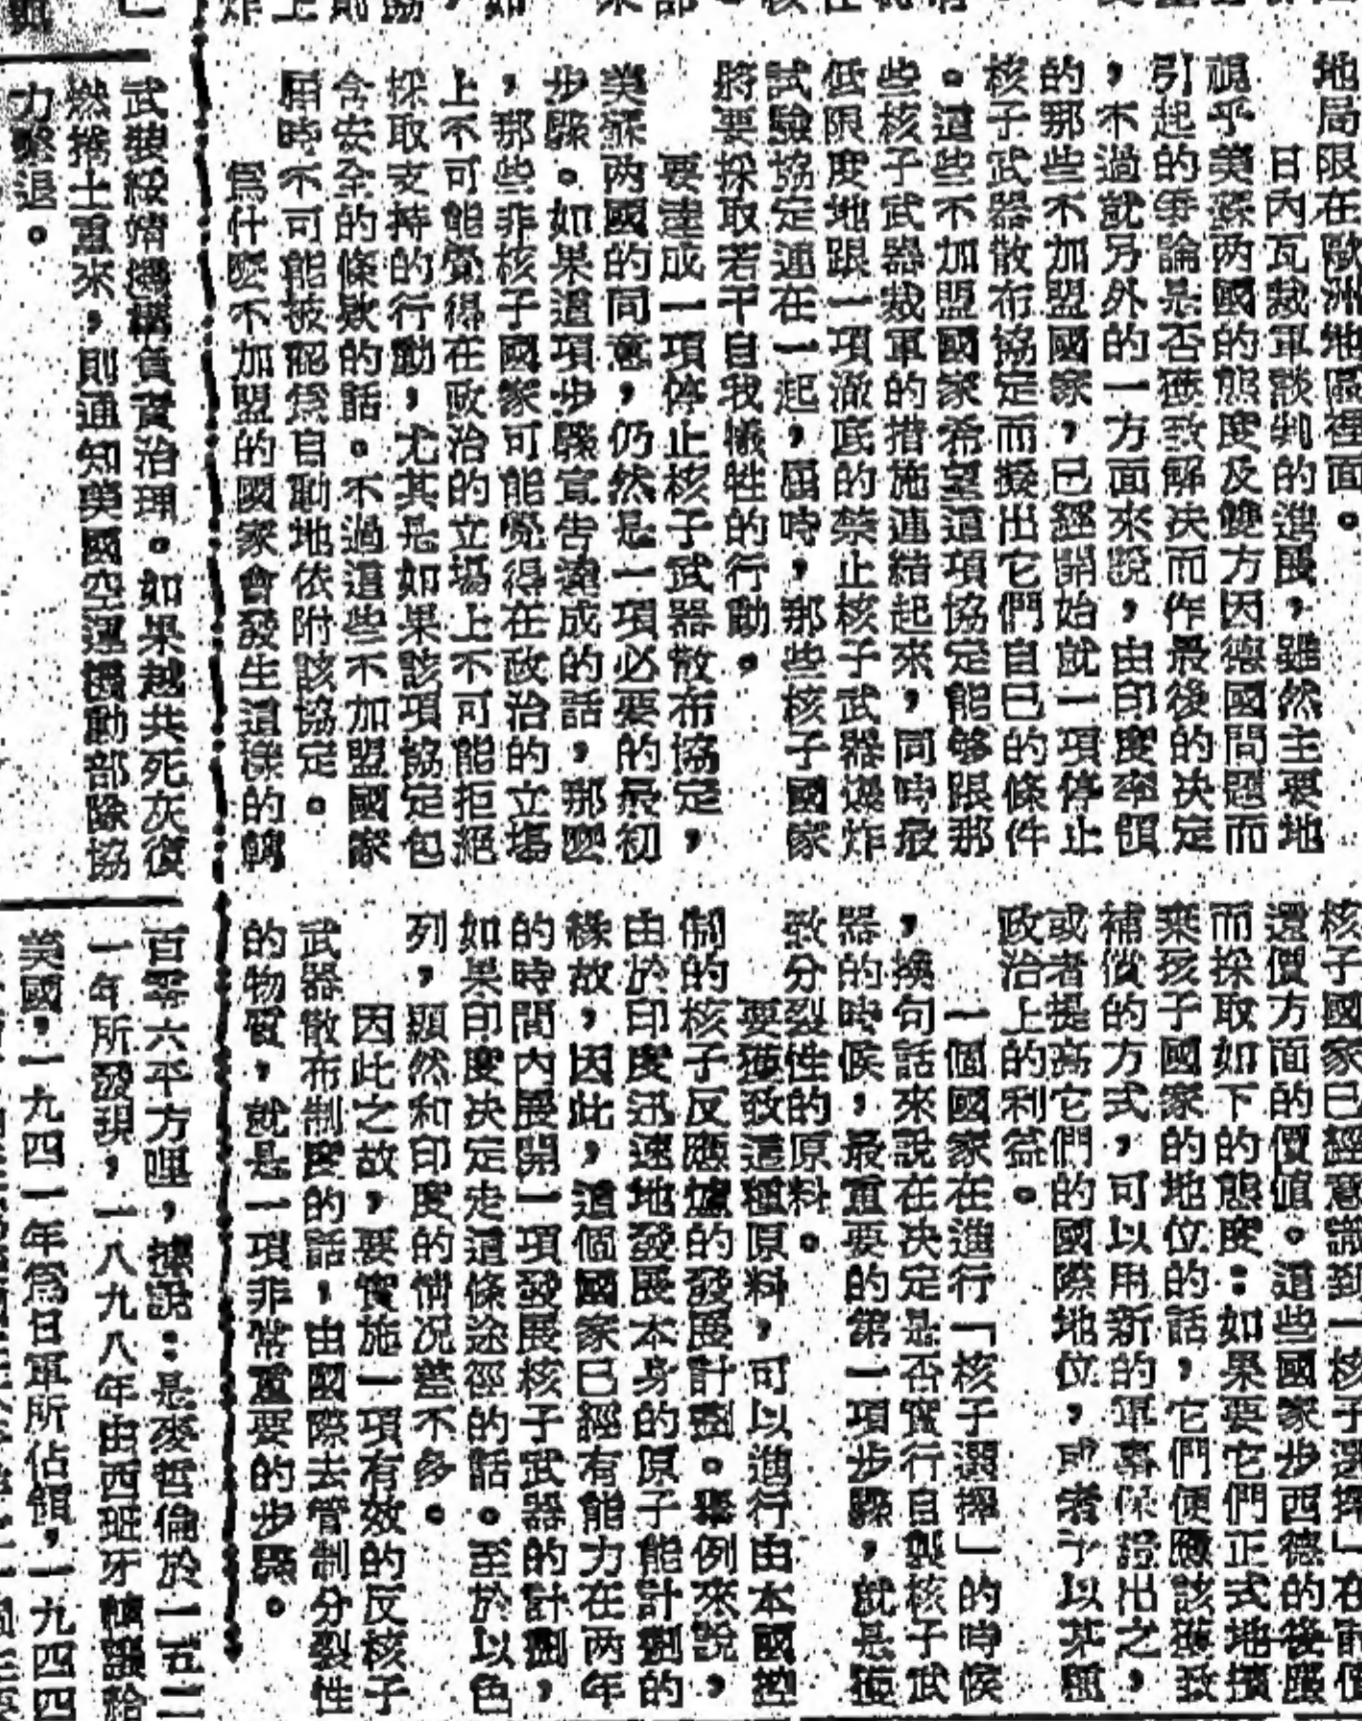 地局限在歐洲地區裡面。
日內瓦裁軍談判的進展，雖然主要地
視乎美蘇两國的態度及雙方因德國問題而
引起的爭論是否獲致解决而作最後的决定
，不過就另外的一方面來說，由印度率領
的那些不加盟國家，已經開始就一項停止
核子武器散布協定而擬出它們自己的條件
。這些不加盟國家希望這項協定能够跟那
些核子武器裁軍的措施連結起來，同時最
低限度地跟一項澈底的禁止核子武器爆炸
試驗協定連在一起，屆時，那些核子國家
將要採取若干自我犧牲的行動。
要達成一項停止核子武器散布協定，
美蘇两國的同意，仍然是一項必要的最初
步驟。如果這項步驟宣告達成的話，那麼
，那些非核子國家可能覺得在政治的立場
上不可能覺得在政治的立場上不可能拒絕
採取支持的行動，尤其是如果該項協定包
含安全的條欵的話。不過這些不加盟國家
屆時不可能被認爲自動地依附該協定。
爲什麼不加盟的國家會發生這樣的轉
武裝綏靖機構負責治理。如果越共死灰復
燃捲土重來，則通知美國空運機動部隊協
力擊退。
核子國家已經意識到「核子選擇」在討價
還價方面的價值。這些國家步西德的後塵
而採取如下的態度：如果要它們正式地擯
棄孩子國家的地位的話，它們便應該獲致
補償的方式，可以用新的軍事保證出之，
或者提高它們的國際地位，或者予以某種
政治上的利益。
一個國家在進行「核子選擇」的時候
，換句話來說在决定是否實行自製核子武
器的時候，最重要的第一項步驟，就是獲
致分裂性的原料。
要獲致這種原料，可以進行由本國控
制的核子反應爐的發展計劃。舉例來說，
由於印度迅速地發展本身的原子能計劃的
緣故，因此，這個國家已經有能力在两年
的時間內展開一項發展核子武器的計劃，
如果印度决定走這條途徑的話。至於以色
列，顯然和印度的情况差不多。
因此之故，要實施一項有效的反核子
武器散布制度的話，由國際去管制分裂性
的物質，就是一項非常重要的步驟。
百零六平方哩，據說：是麥哲倫於一五二
一年所發現，一八九八年由西班牙轉讓給
美國，一九四一年爲日軍所佔領，一九四四